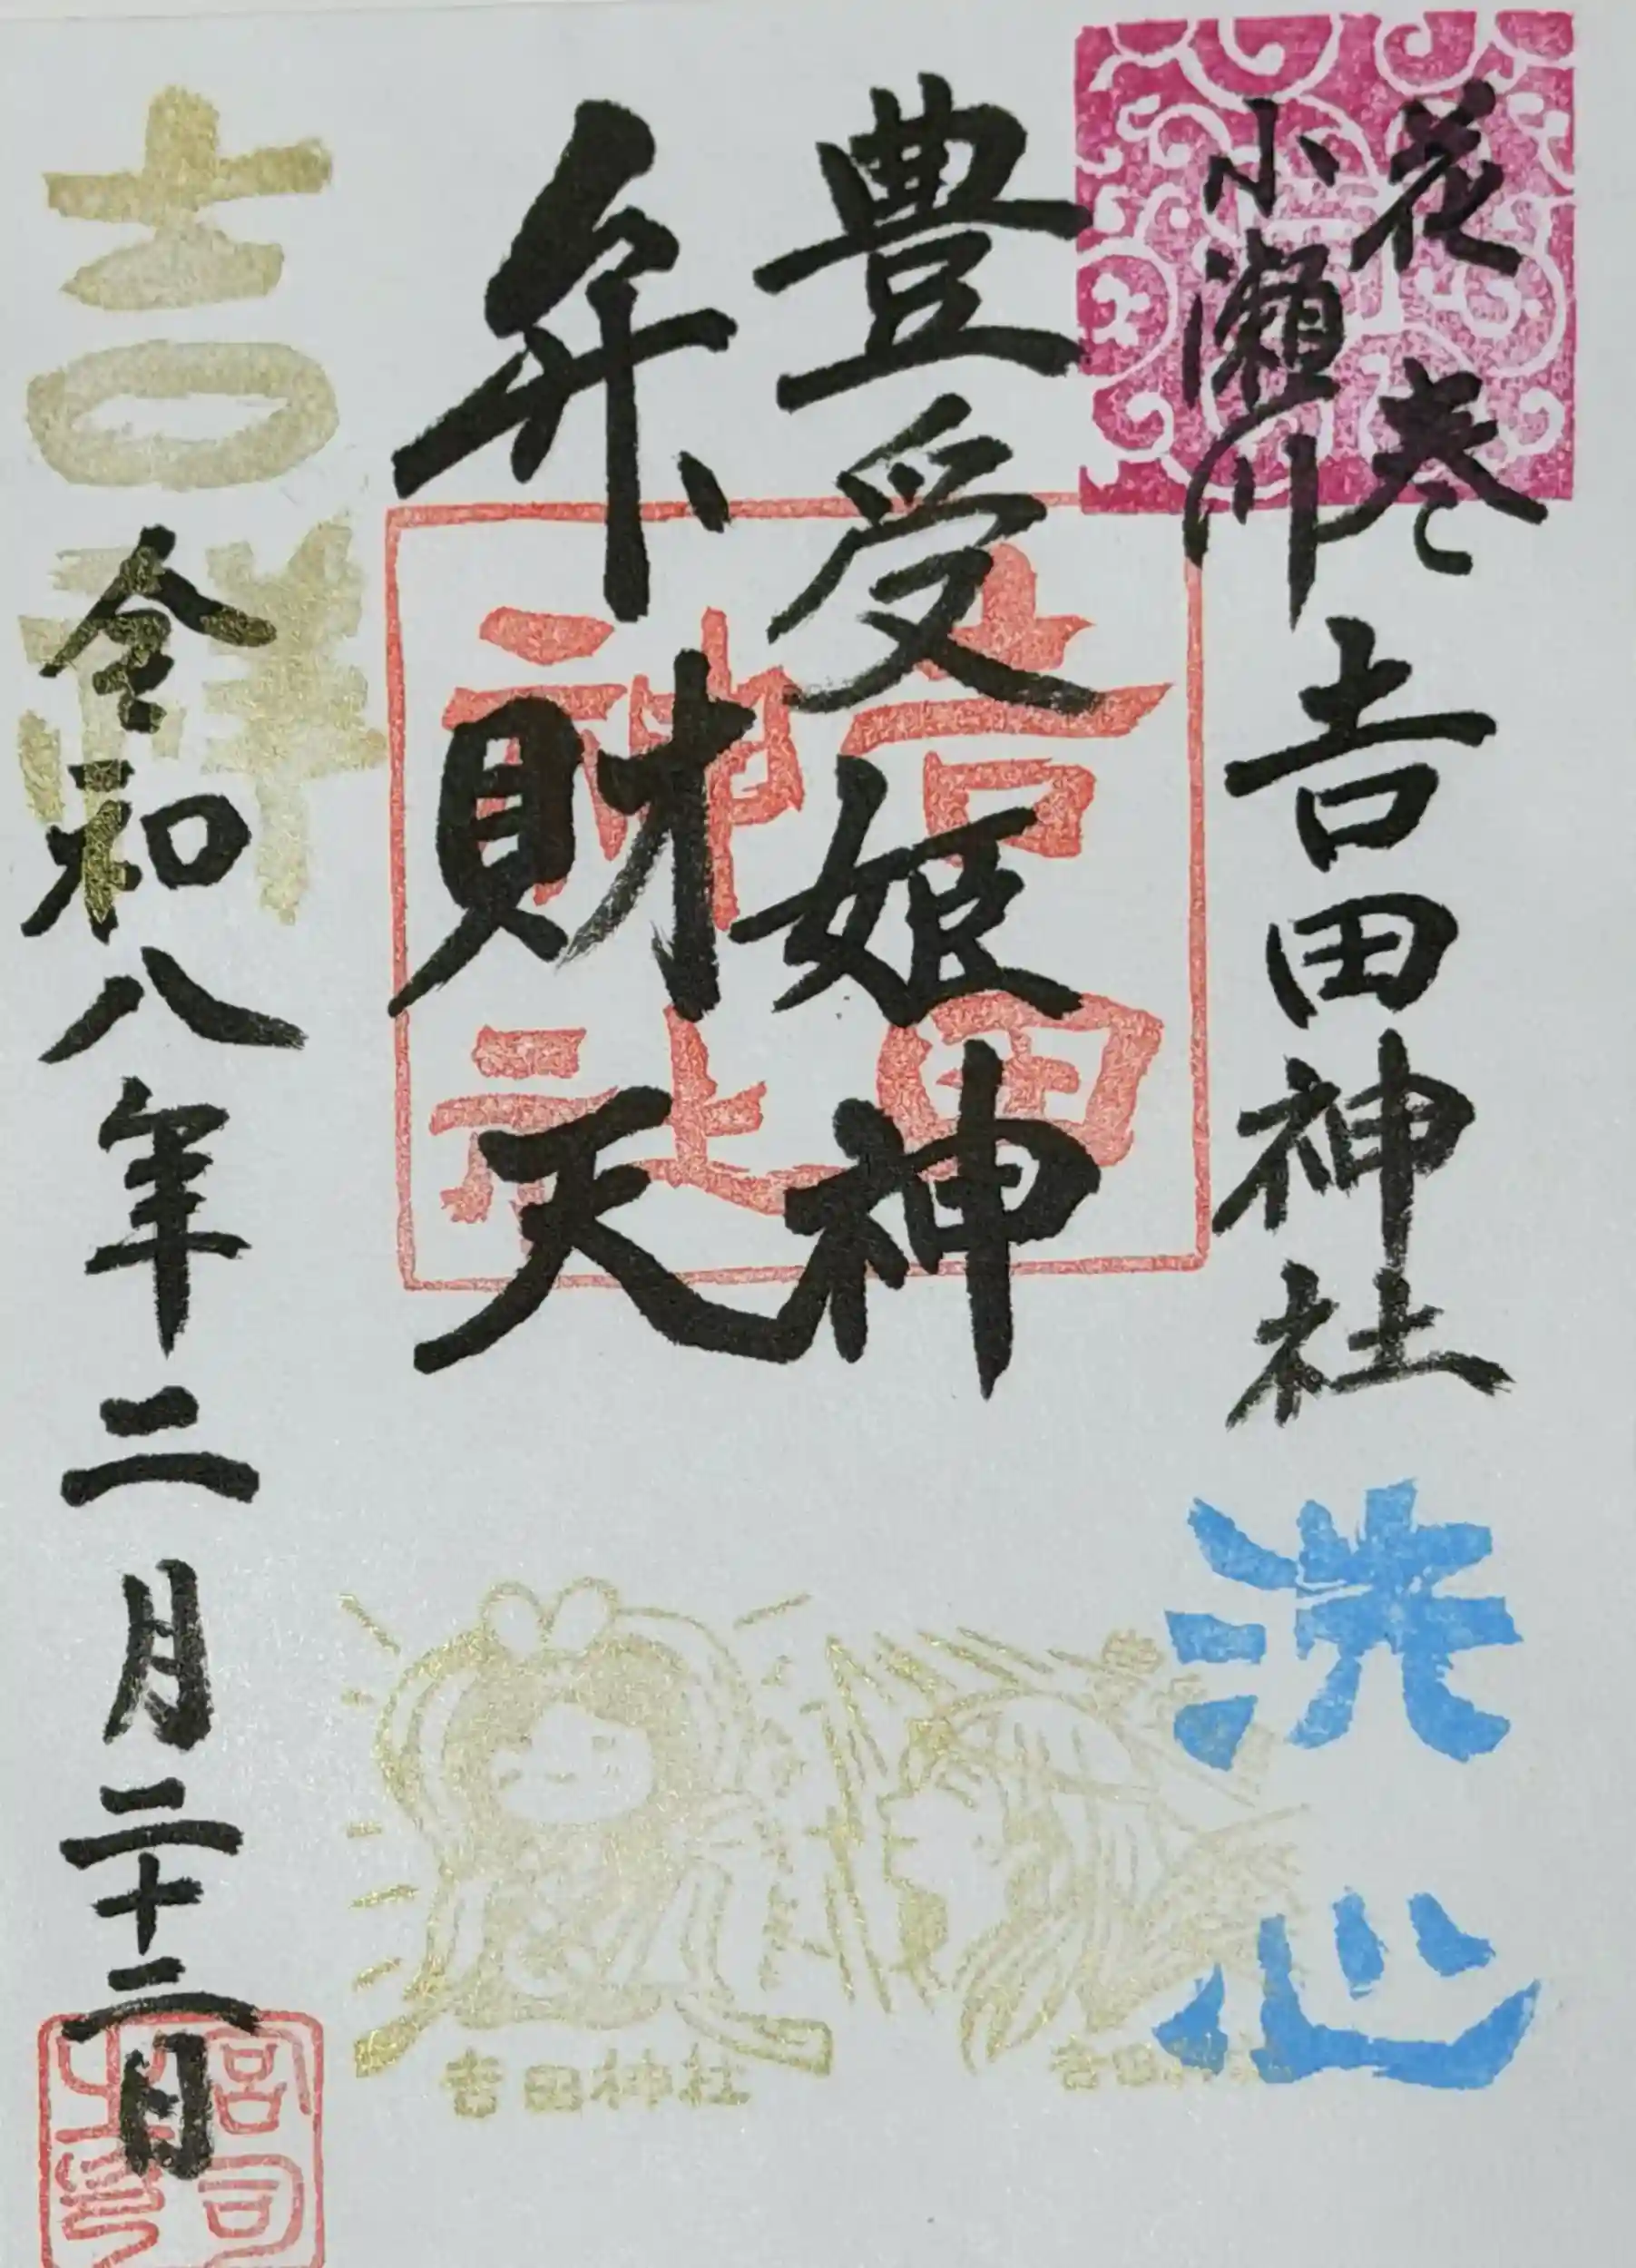 花巻
小瀬川
吉田神社
洗心
豊受姫神
弁財天
吉田
神社
吉田神社
吉田神社
吉祥
令和八年二月二十二日
宮司
之印